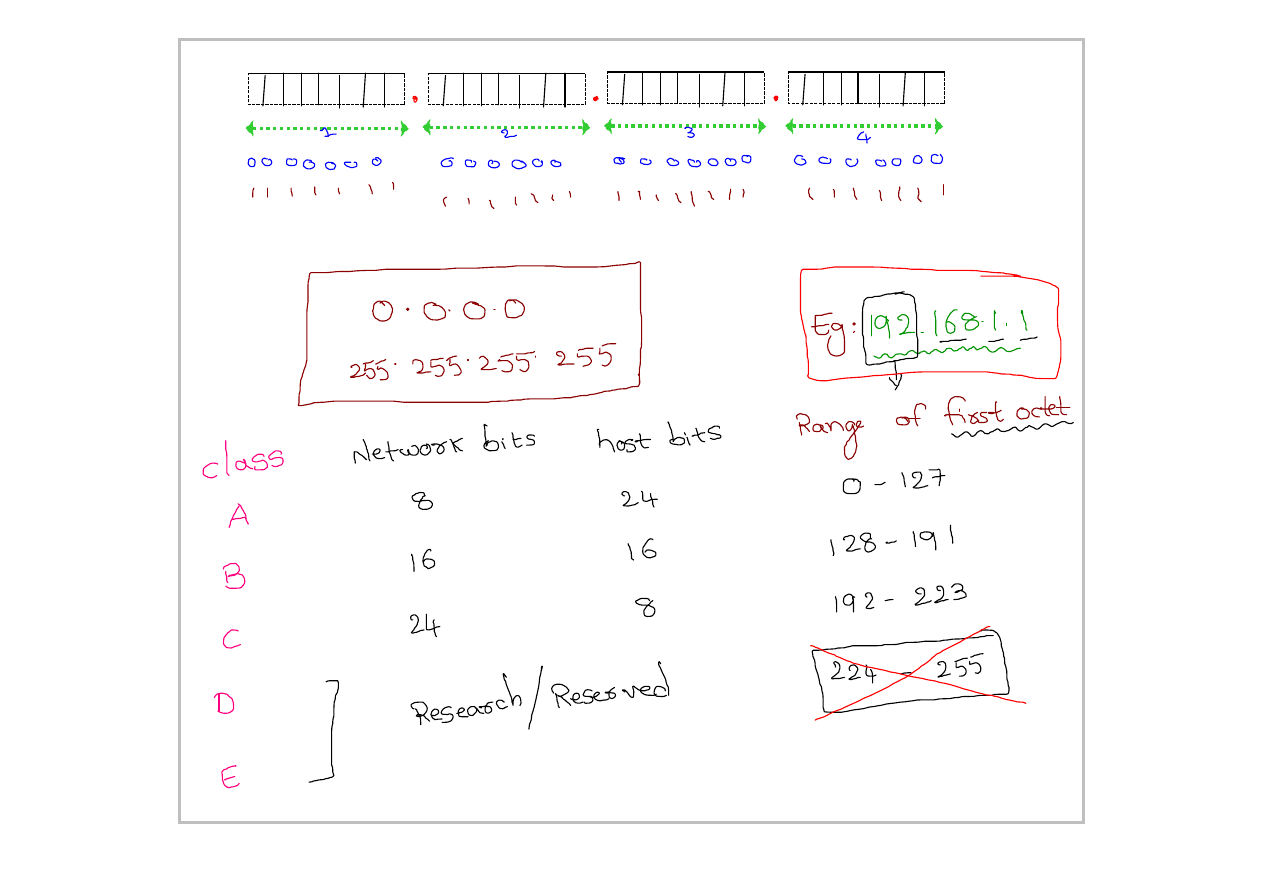 . . .
1 2 3 4
0000000 000000 0000000 0000000
1111111 1111111 11111111 1111111
0.0.0.0
255.255.255.255
Eg: 192.168.1.1
class Network bits host bits Range of first octet
A 8 24 0 - 127
B 16 16 128 - 191
C 24 8 192 - 223
D Research/Reserved 224 - 255
E